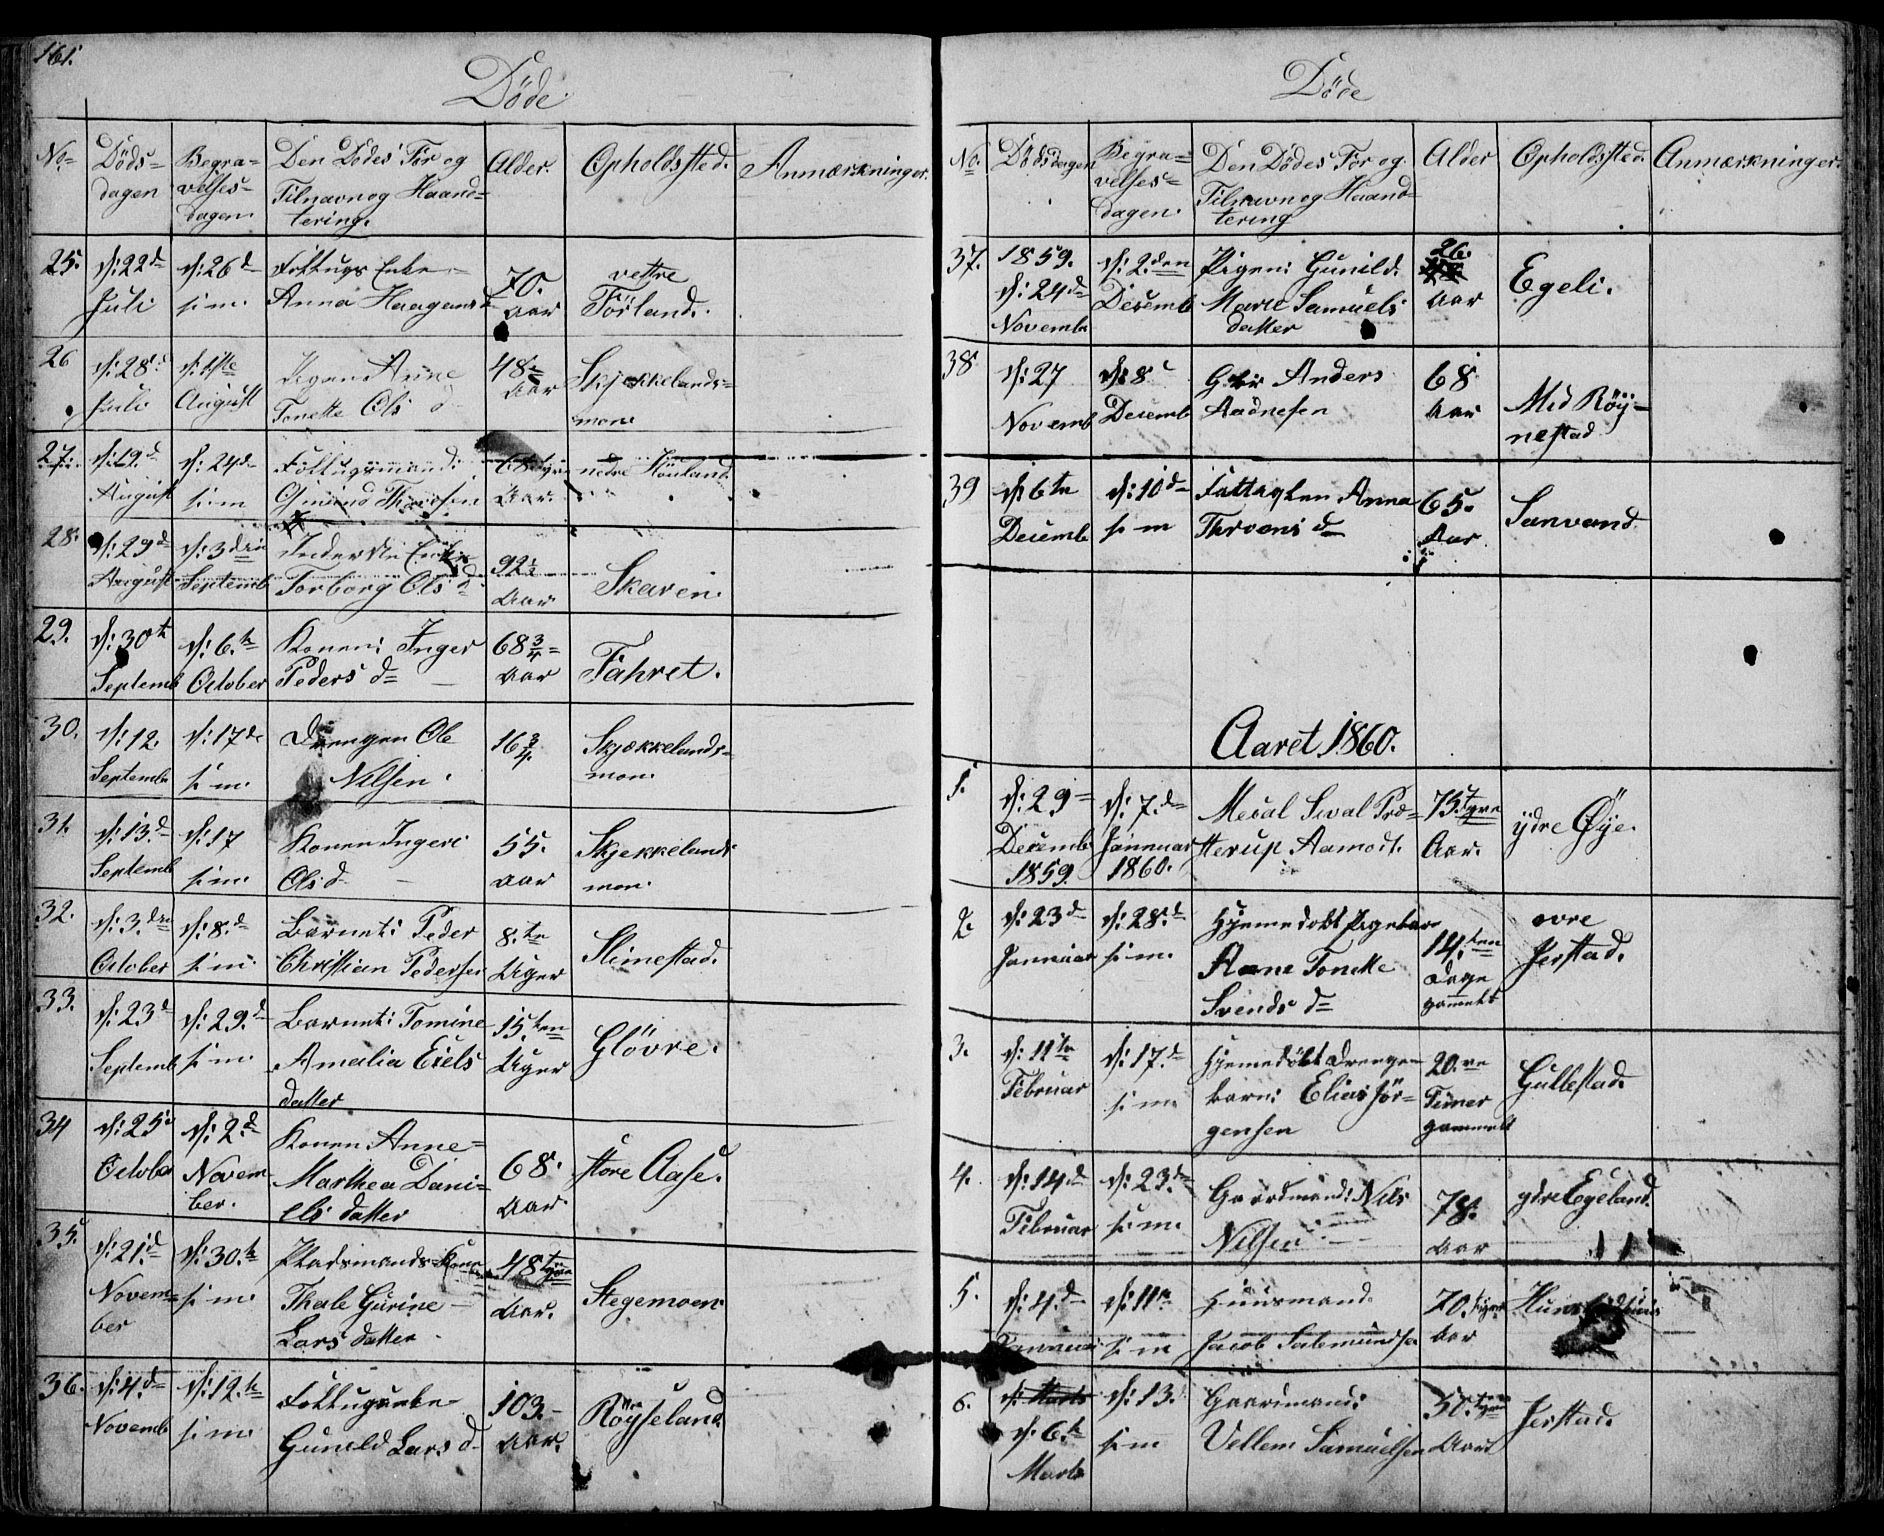 161.
Döde.
No=
Döds=
dagen
Begra=
velses=
dagen.
Den Dödes' För og
Tilnavn og Haand=
tering.
Alder.
Opholdssted.
Anmærkninger.
25.
d: 22d
Juli
d: 26d
s: m.
Fattugs Enke
Anna Haagens
70.
Aar
vestre
Förland.
26
d: 28
Juli
d: 1ste
August
Pigen Anne
Tonette Ols d
48
Aar
Skjækkelands=
moen
27.
d: 19.d
August
d: 24d
s: m
Fattugsmand:
Osmund
Aar.
nedre Höuland
28.
d: 29d
August
d: 3die
Septemb
Inderste Enke
Torborg Ols d
92½
Aar
Skaren.
29.
d: 30te
Septemb
d: 6.te
October
Konen: Inger
Peders d=
68¾=
Aar
Fahret.
30.
d: 12.
Septemb
d: 17de
s: m.
Drengen Ole
Nilsen.
16¾
Skjækkelands=
mon.
31.
d: 13.d
Septemb
d: 17
s: m.
Konen Ingere
Ols d
55.
Aar
Skjekkelands
mon.
32.
d: 3.die
October
d: 8.d
s: m.
Barnet: Peder
Christian Pedersen
8.te
Uger
Slimestad.
33.
d: 23d
Septemb
d: 29.d
s: m.
Barnet: Tomine
Amalia Eiels
datter
15ten
Uger
Glövre.
34
d: 25
October
d: 2.d
Novem
ber.
Konen Anne=
Marthea Dani=
els datter
68.
Aar.
store Aase.
35.
d: 21.d
Novem=
ber
d: 30.te
s: m.
Pladsmands Kone
Thale Gurine
Lars datter.
48
Aar.
Stegemoen
36.
d: 4.de
Novemb
d: 12.te
s: m.
Fattugenke
Gunild Lars d.
103.
Aar.
Röyseland
Döde
No.
Dödsdagen
Begra=
velses=
dagen.
Den Dödes För og.
Tilnavn og Haand=
tering
Alder
Opholdssted.
Anmærkninger.
37.
1859.
d: 24d
Novemb
d: 2.den
Decemb
Pigen: Gunild.
Marie Samuels
datter
26.
Aar
Egeli.
38
d: 27
Novemb
d: 8
Decemb
Anders
Aadnesen
68
Aar
Mid Röy=
nestad
39
d: 6te
Decemb
d: 10d
s: m
Fattaglem Anna
Tarvans d=
65.
Aar
Sanvand
Aaret 1860.
1.
d: 29
Decemb
1859.
d: 7.de
Januar
1860.
Mecal Sival Præ=
sterup Aamodt.
75 tyve
Aar.
ydre Øye.
2.
d: 23d
Januar
d: 28.d
s: m.
Hjemedöbt Pigebarn
Anne Tonette
Svends d=
14.ten
Dage
gammelt
övre
Jerstad.
3.
d: 11te
Februar
d: 17.d
s: m.
Hjemedöbt Drenge
barn: Elias Jör=
gensen
20.ve
Timer
gammelt
Gullestad.
4.
d: 14d
Februar
d: 23.de
s: m.
Gaardmand: Nils
Nilsen
78.
Aar
ydre Egeland.
5.
d: 4.d
Januar
d: 11te
s: m
Huusmand.
Jacob Salemundsen
70.
Aar
6.
d: Marts
d: 6.te
Marts
d: 13.
s: m
Gaardmand:
Vellem Samuelsen
50.
Aar
Jerstad.